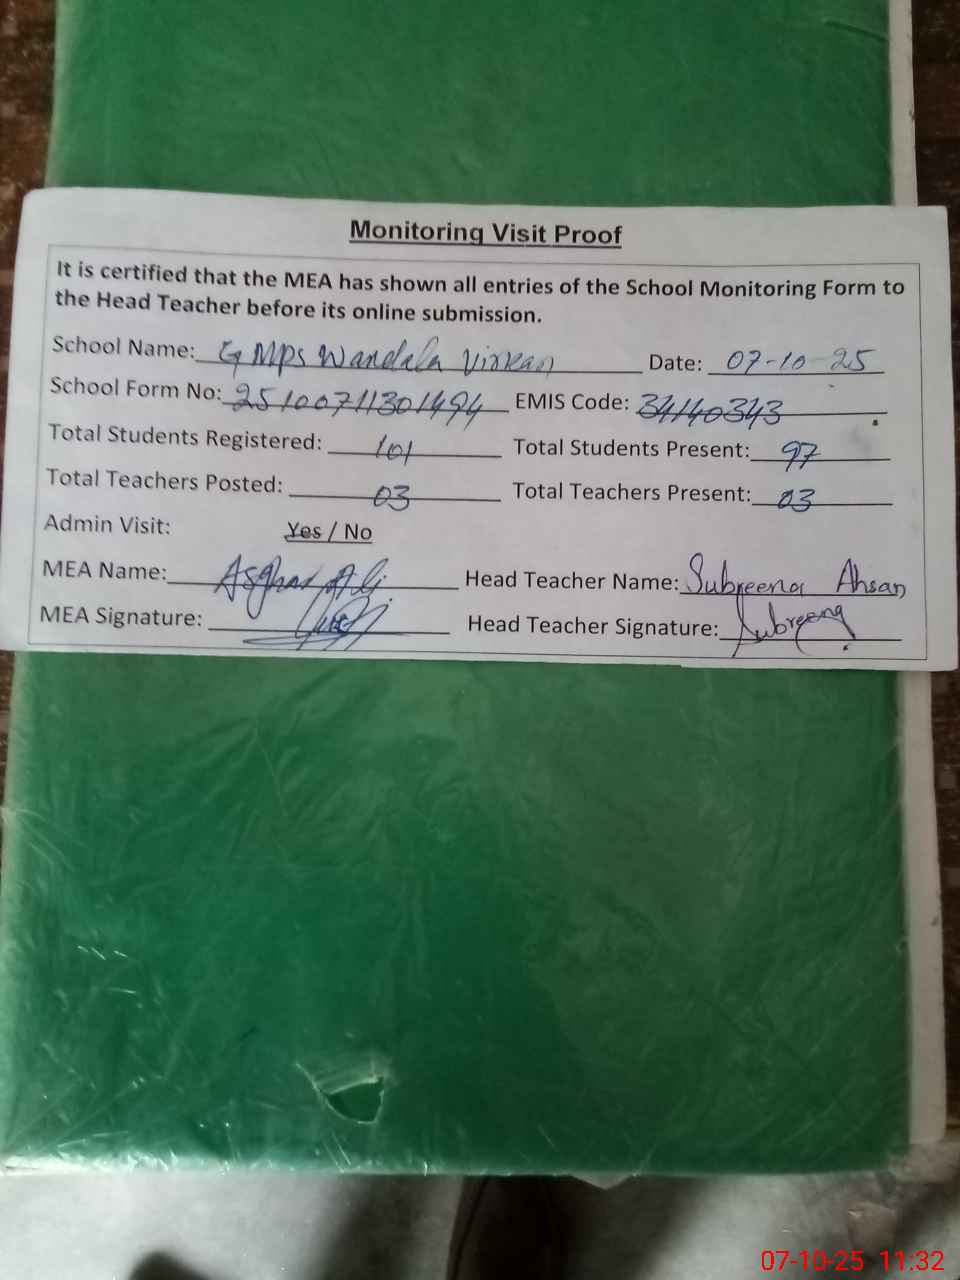 Monitoring Visit Proof
It is certified that the MEA has shown all entries of the School Monitoring Form to
the Head Teacher before its online submission.
School Name: GMPS Wandala Virkan Date: 07-10-25
School Form No: 25100711301494 EMIS Code: 34140343
Total Students Registered: 101 Total Students Present: 97
Total Teachers Posted: 03 Total Teachers Present: 03
Admin Visit: Yes / No
MEA Name: Asghar Ali Head Teacher Name: Subreena Ahsan
MEA Signature: Head Teacher Signature: Subreena
07-10-25 11:32